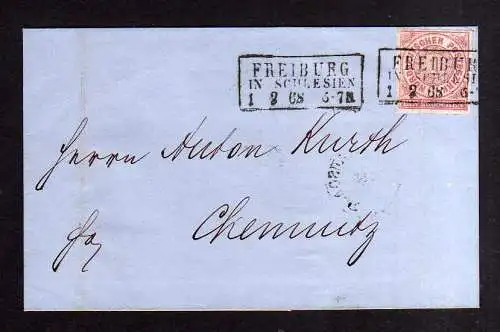 FREIBURG
IN SCHLESIEN
1 2 68 6-7N
FREIBUR
IN SCHLESI
1 2 68 6-
Herrn Anton Kurth
Chemnitz